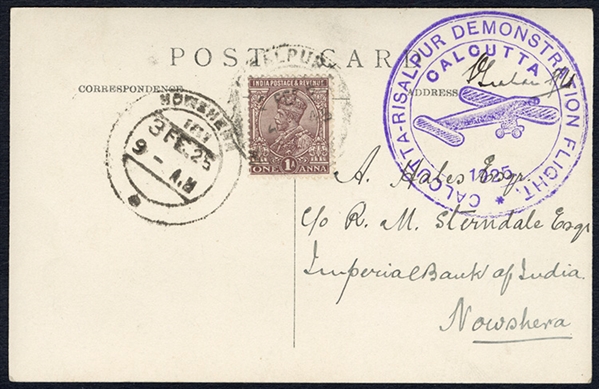 POST CARD
CORRESPONDENCE
ADDRESS
CALCUTTA-RISALPUR DEMONSTRATION FLIGHT.
CALCUTTA
1925
NOWSHERA
3 FE. 25
9 - A.M
INDIA POSTAGE & REVENUE
1A
ONE ANNA
A. Hales Esqr.
c/o R. M. Sterndale Esqr
Imperial Bank of India
Nowshera